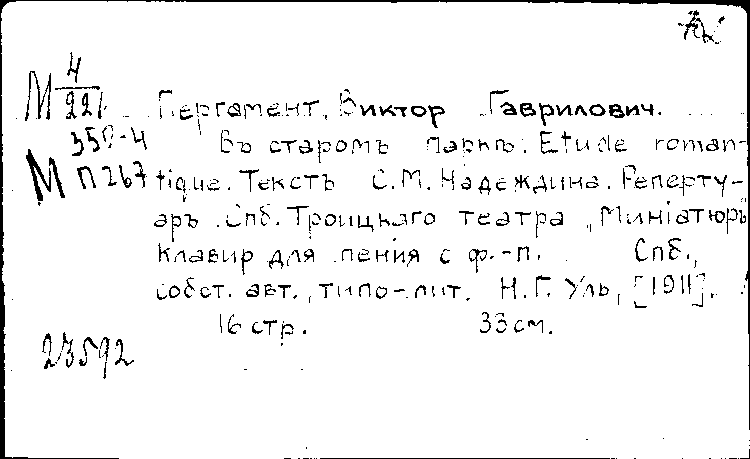 М 4/221.
Пергамент, Виктор Гаврилович.
350-4
Въ старомъ паркѣ. Etude roman-
М П267
tique. Текстъ С.М. Надеждина. Реперту-
аръ Спб. Троицкаго театра „Миніатюръ
Клавир для пения с ф.-п. Спб.,
собст. авт., типо-лит. Н.Г. Уль, [1911].
16 стр. 33 см.
23592